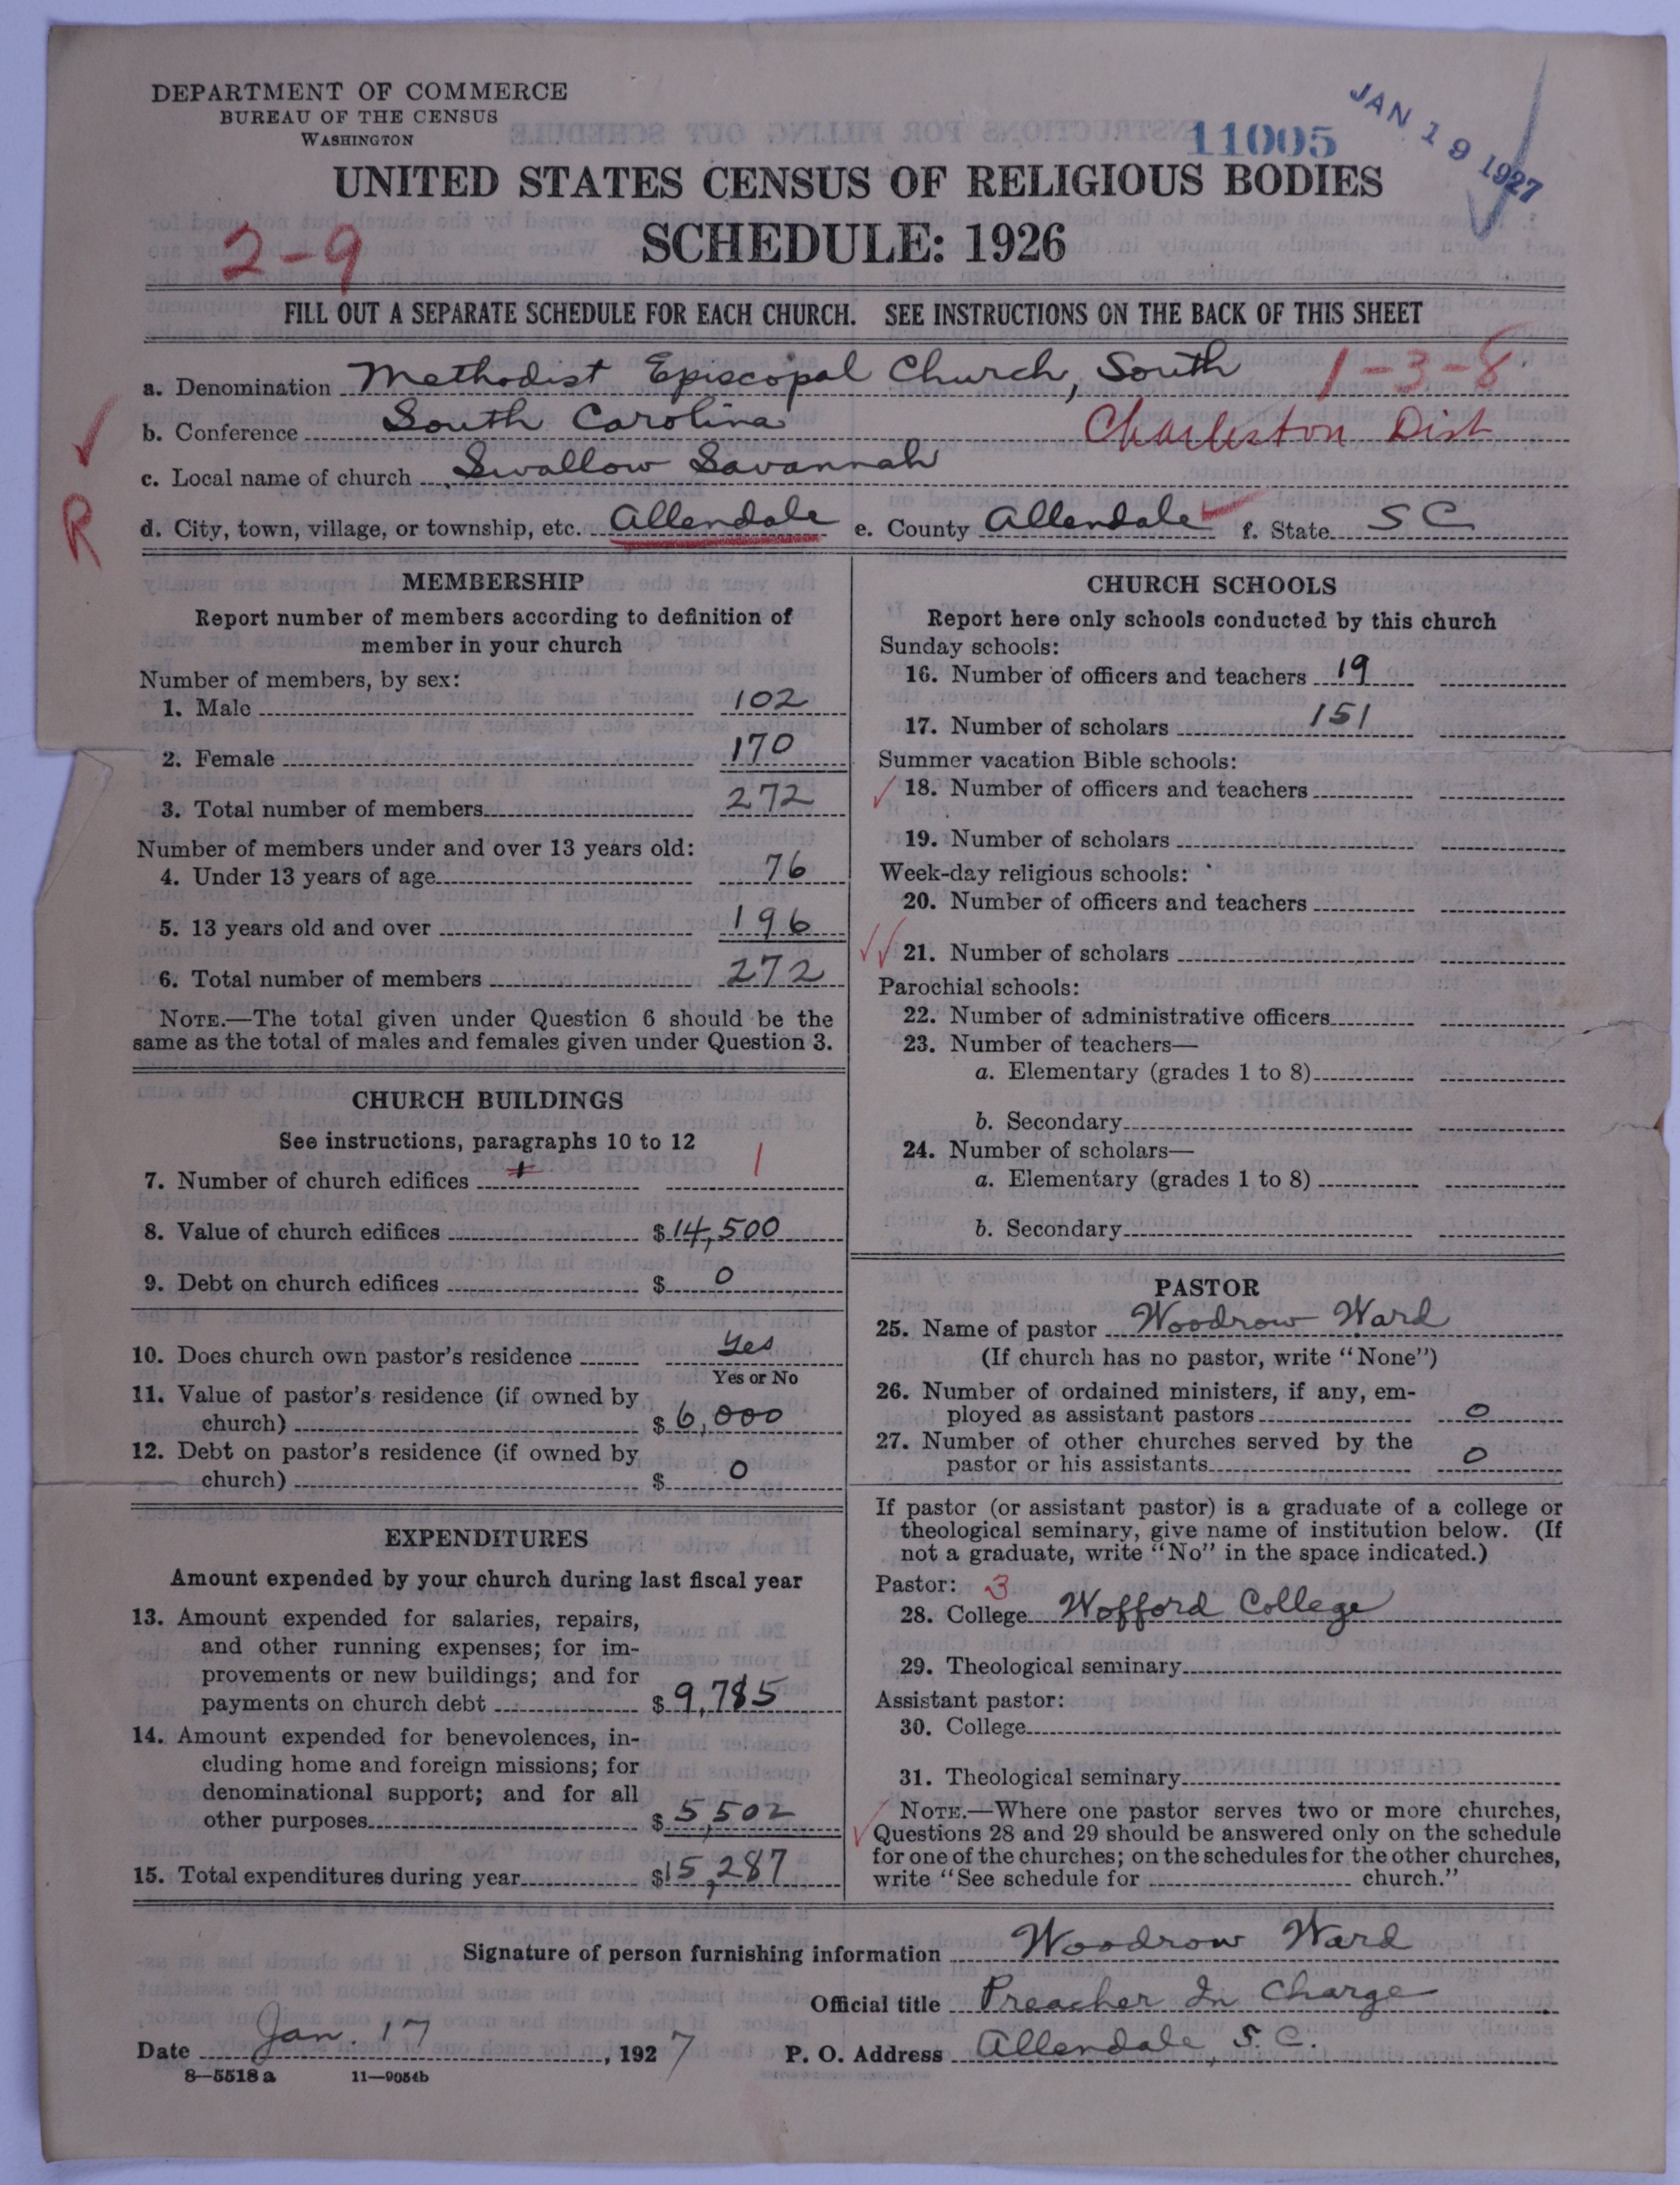 DEPARTMENT OF COMMERCE
BUREAU OF THE CENSUS
WASHINGTON
11005
JAN 19 1927
UNITED STATES CENSUS OF RELIGIOUS BODIES
2-9
SCHEDULE: 1926
FILL OUT A SEPARATE SCHEDULE FOR EACH CHURCH. SEE INSTRUCTIONS ON THE BACK OF THIS SHEET
a. Denomination Methodist Episcopal Church, South 1-3-8
b. Conference South Carolina Charleston Dist
c. Local name of church Swallow Savannah
R
d. City, town, village, or township, etc. Allendale e. County Allendale f. State S C
MEMBERSHIP
Report number of members according to definition of
member in your church
Number of members, by sex:
1. Male 102
2. Female 170
3. Total number of members 272
Number of members under and over 13 years old:
4. Under 13 years of age 76
5. 13 years old and over 196
6. Total number of members 272
NOTE.—The total given under Question 6 should be the
same as the total of males and females given under Question 3.
CHURCH BUILDINGS
See instructions, paragraphs 10 to 12
7. Number of church edifices 1
8. Value of church edifices $14,500
9. Debt on church edifices $ 0
10. Does church own pastor's residence Yes
Yes or No
11. Value of pastor's residence (if owned by
church) $6,000
12. Debt on pastor's residence (if owned by
church) $ 0
EXPENDITURES
Amount expended by your church during last fiscal year
13. Amount expended for salaries, repairs,
and other running expenses; for im-
provements or new buildings; and for
payments on church debt $9,785
14. Amount expended for benevolences, in-
cluding home and foreign missions; for
denominational support; and for all
other purposes $5,502
15. Total expenditures during year $15,287
CHURCH SCHOOLS
Report here only schools conducted by this church
Sunday schools:
16. Number of officers and teachers 19
17. Number of scholars 151
Summer vacation Bible schools:
18. Number of officers and teachers
19. Number of scholars
Week-day religious schools:
20. Number of officers and teachers
21. Number of scholars
Parochial schools:
22. Number of administrative officers
23. Number of teachers—
a. Elementary (grades 1 to 8)
b. Secondary
24. Number of scholars—
a. Elementary (grades 1 to 8)
b. Secondary
PASTOR
25. Name of pastor Woodrow Ward
(If church has no pastor, write "None")
26. Number of ordained ministers, if any, em-
ployed as assistant pastors 0
27. Number of other churches served by the
pastor or his assistants 0
If pastor (or assistant pastor) is a graduate of a college or
theological seminary, give name of institution below. (If
not a graduate, write "No" in the space indicated.)
Pastor: 3
28. College Wofford College
29. Theological seminary
Assistant pastor:
30. College
31. Theological seminary
NOTE.—Where one pastor serves two or more churches,
Questions 28 and 29 should be answered only on the schedule
for one of the churches; on the schedules for the other churches,
write "See schedule for church."
Signature of person furnishing information Woodrow Ward
Official title Preacher In Charge
Date Jan. 17, 1927 P. O. Address Allendale, S. C.
8—5518 a 11—9054b